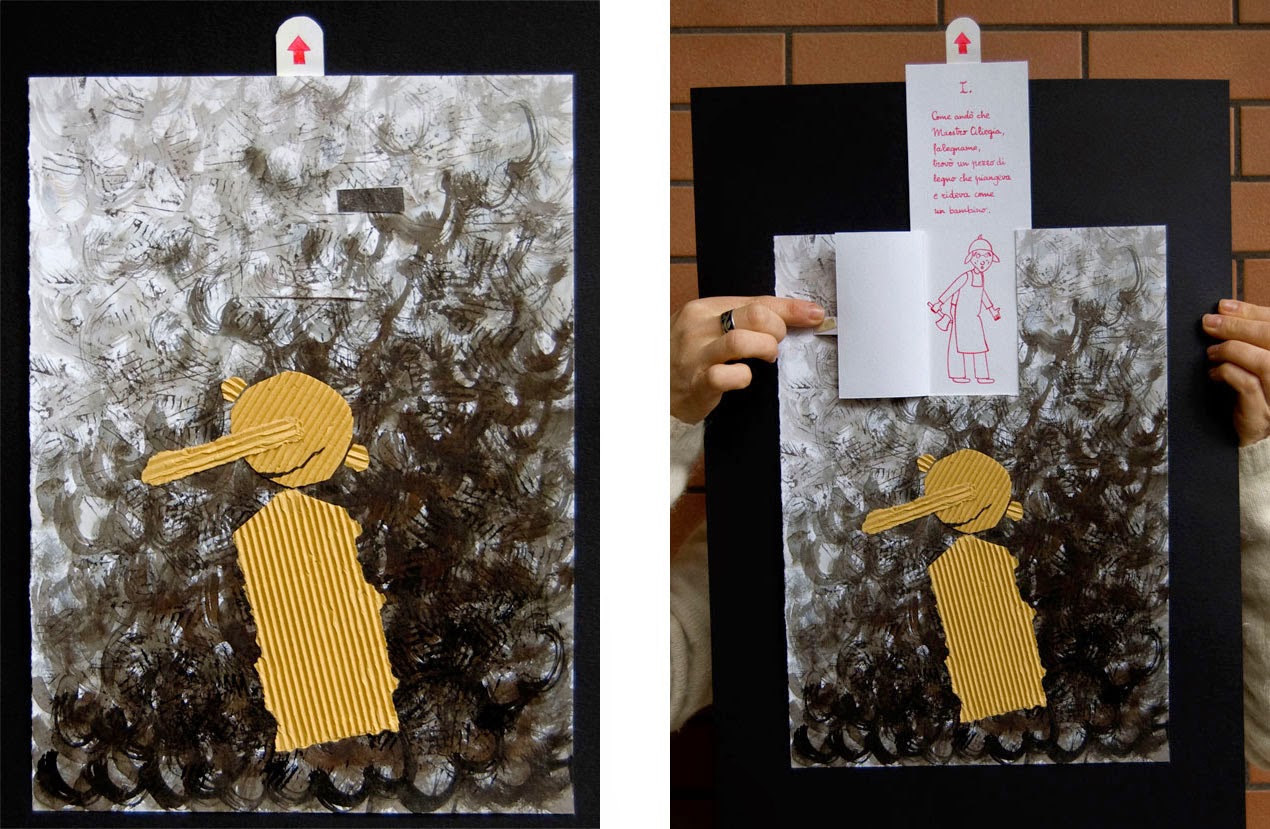 I.
Come andò che
Maestro Ciliegia,
falegname,
trovò un pezzo di
legno che piangeva
e rideva come
un bambino.